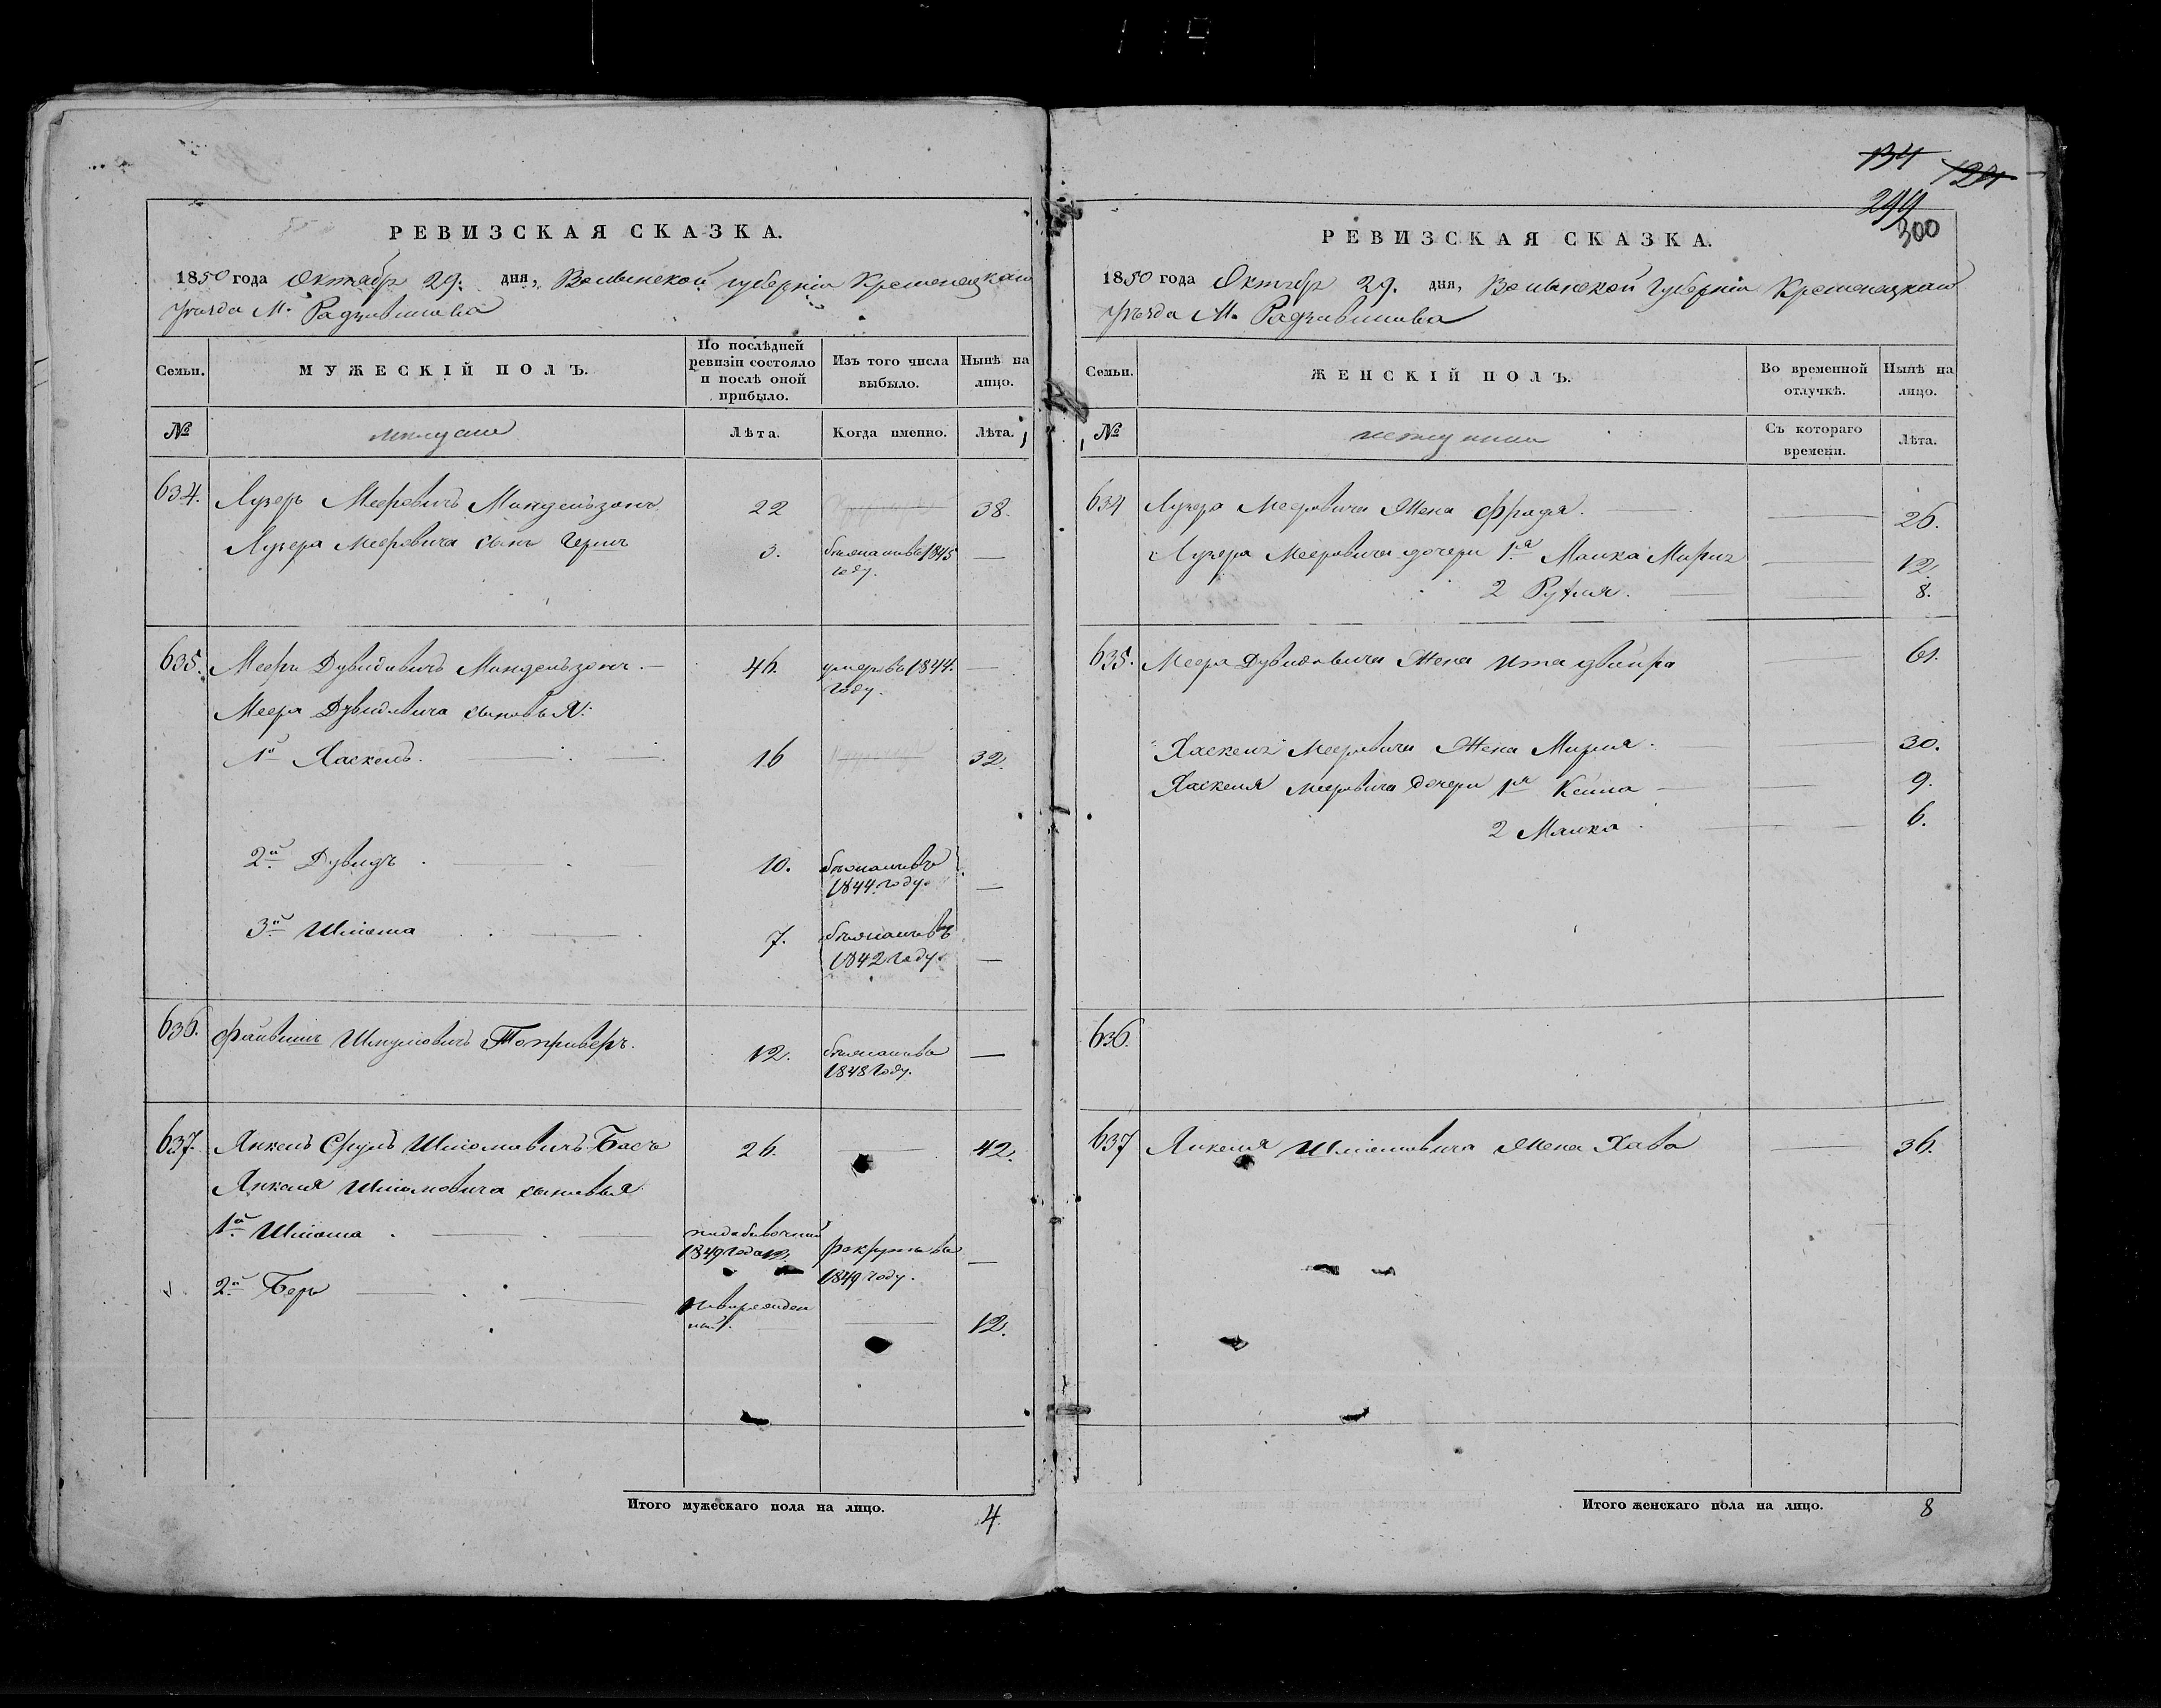 РЕВИЗСКАЯ СКАЗКА.
1850 года Октябр 29. дня, Волынской губерніи Кременецкаго
Уѣзда М. Радзивилова
Семьи.
МУЖЕСКІЙ ПОЛЪ.
По послѣдней
ревизіи состояло
и послѣ оной
прибыло.
Изъ того числа
выбыло.
Нынѣ на
лицо.
№
Лѣта.
Когда именно.
Лѣта.
634. Лузеръ Мееровичъ Мандельзонъ 22 38.
Лузера Мееровича сынъ Гершъ 3. 1845 —
году.
635. Мееръ Дувидовичъ Мандельзонъ. — 46. умеръ въ 1844. —
году.
Меера Дувидовича сыновья:
1й Хаскель. 16 32.
2й Дувидъ. 10.
1844 году. —
3й Шліома 7.
1842 году. —
636. Файвишъ Шмулевичъ 12. —
1848 году.
637. Янкель Сруль Шліомовичъ Басъ 26. 42.
Янкеля Шліомовича сыновья
1й Шліома
1849 года 12. рекрутъ въ —
1849 году.
2й Беръ новорожден
ный. 12.
Итого мужескаго пола на лицо. 4.
134 121
299
300
РЕВИЗСКАЯ СКАЗКА.
1850 года Октябр 29. дня, Волынской Губерніи Кременецкаго
Уѣзда М. Радзивилова
Семьи.
ЖЕНСКІЙ ПОЛЪ.
Во временной
отлучкѣ.
Нынѣ на
лицо.
№
Съ котораго
времени.
Лѣта.
634 Лузера Мееровича Жена Фрадя. 26.
Лузера Мееровича дочери 1я Малка Миріа 12.
2 Рухля. 8.
635. Меера Дувидовича Жена Ита Двойра 61.
Хаскеля Мееровича Жена Миріа. 30.
Хаскеля Мееровича дочери 1я Кейла 9.
2 Малка. 6.
636.
637 Янкеля Шліомовича Жена Хава 36.
Итого женскаго пола на лицо. 8